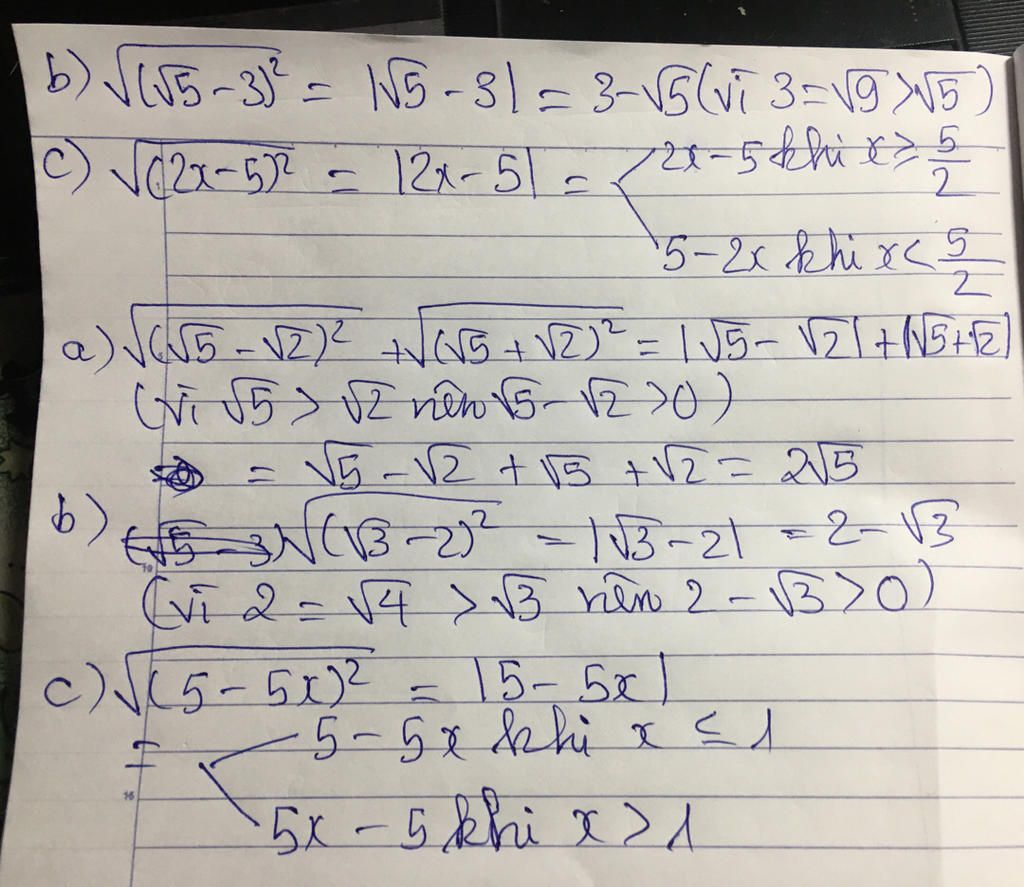 b) √(√5 - 3)² = |√5 - 3| = 3 - √5 (vì 3 = √9 > √5)
c) √(2x - 5)² = |2x - 5| = 2x - 5 khi x ≥ 5/2
5 - 2x khi x < 5/2
a) √(√5 - √2)² + √(√5 + √2)² = |√5 - √2| + |√5 + √2|
(vì √5 > √2 nên √5 - √2 > 0)
= √5 - √2 + √5 + √2 = 2√5
b) √(√3 - 2)² = |√3 - 2| = 2 - √3
(vì 2 = √4 > √3 nên 2 - √3 > 0)
c) √(5 - 5x)² = |5 - 5x|
= 5 - 5x khi x ≤ 1
5x - 5 khi x > 1